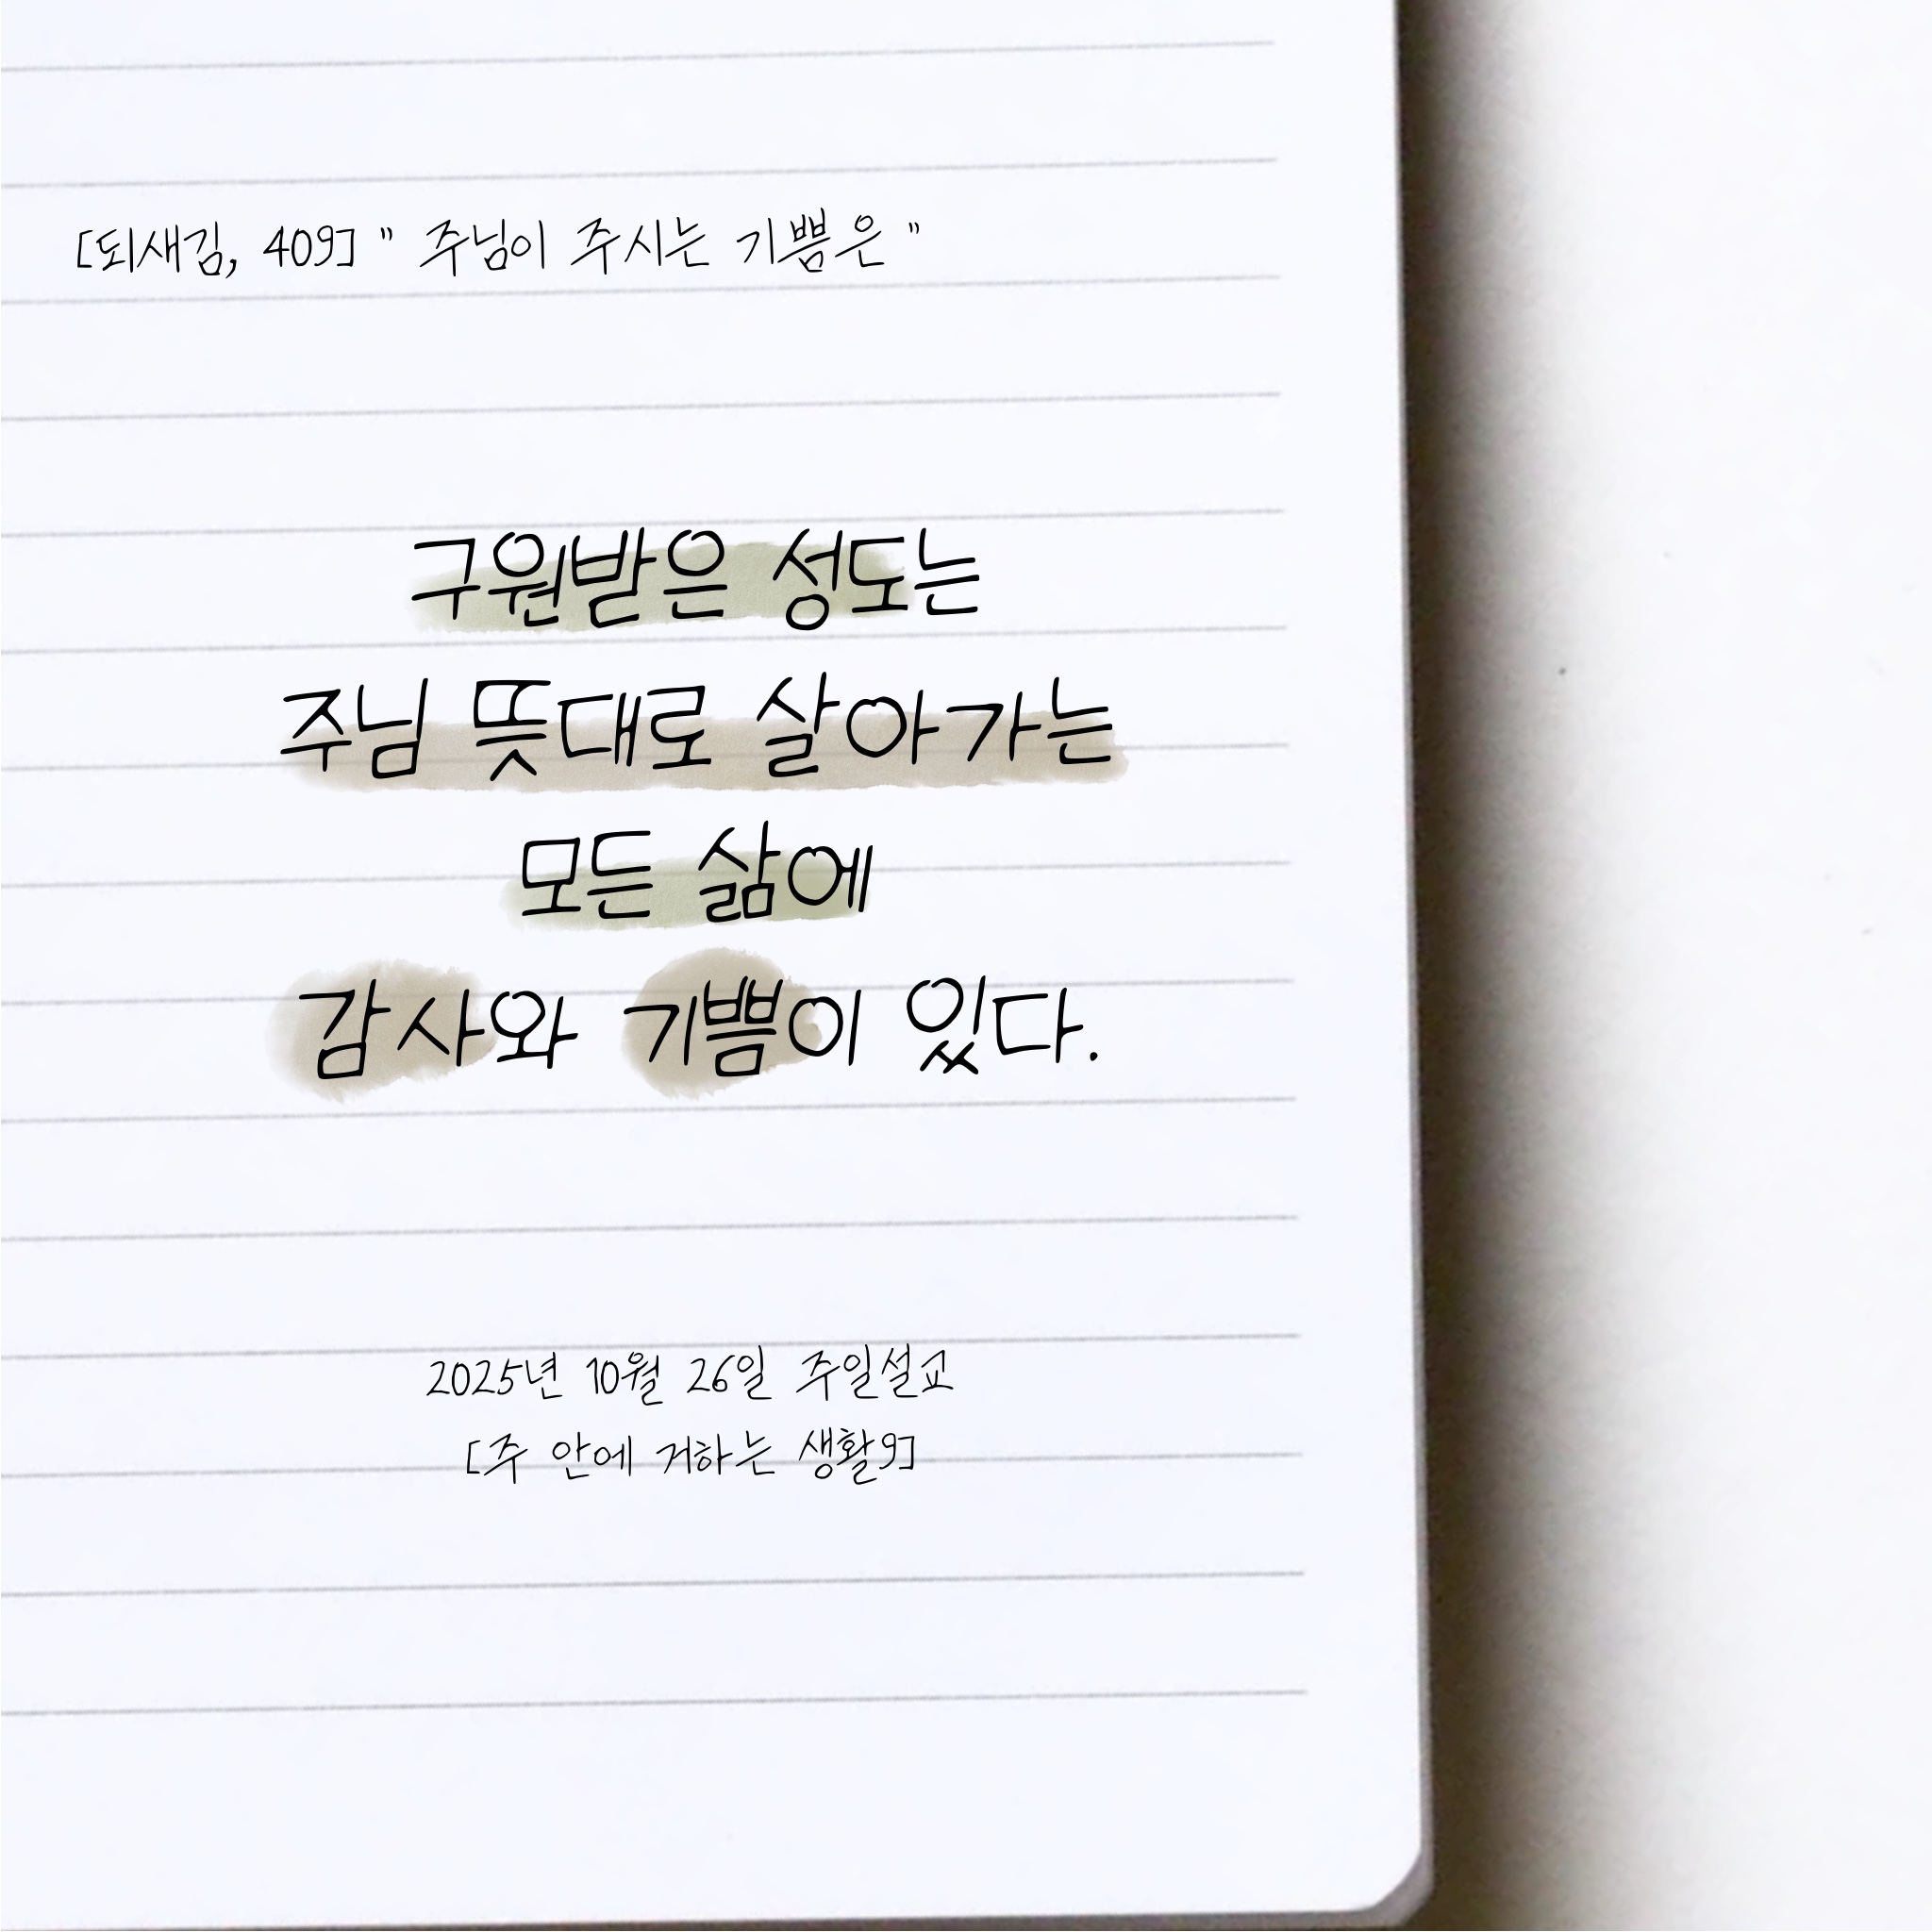 [되새김, 409] " 주님이 주시는 기쁨은 "
구원받은 성도는
주님 뜻대로 살아가는
모든 삶에
감사와 기쁨이 있다.
2025년 10월 26일 주일설교
[주 안에 거하는 생활9]